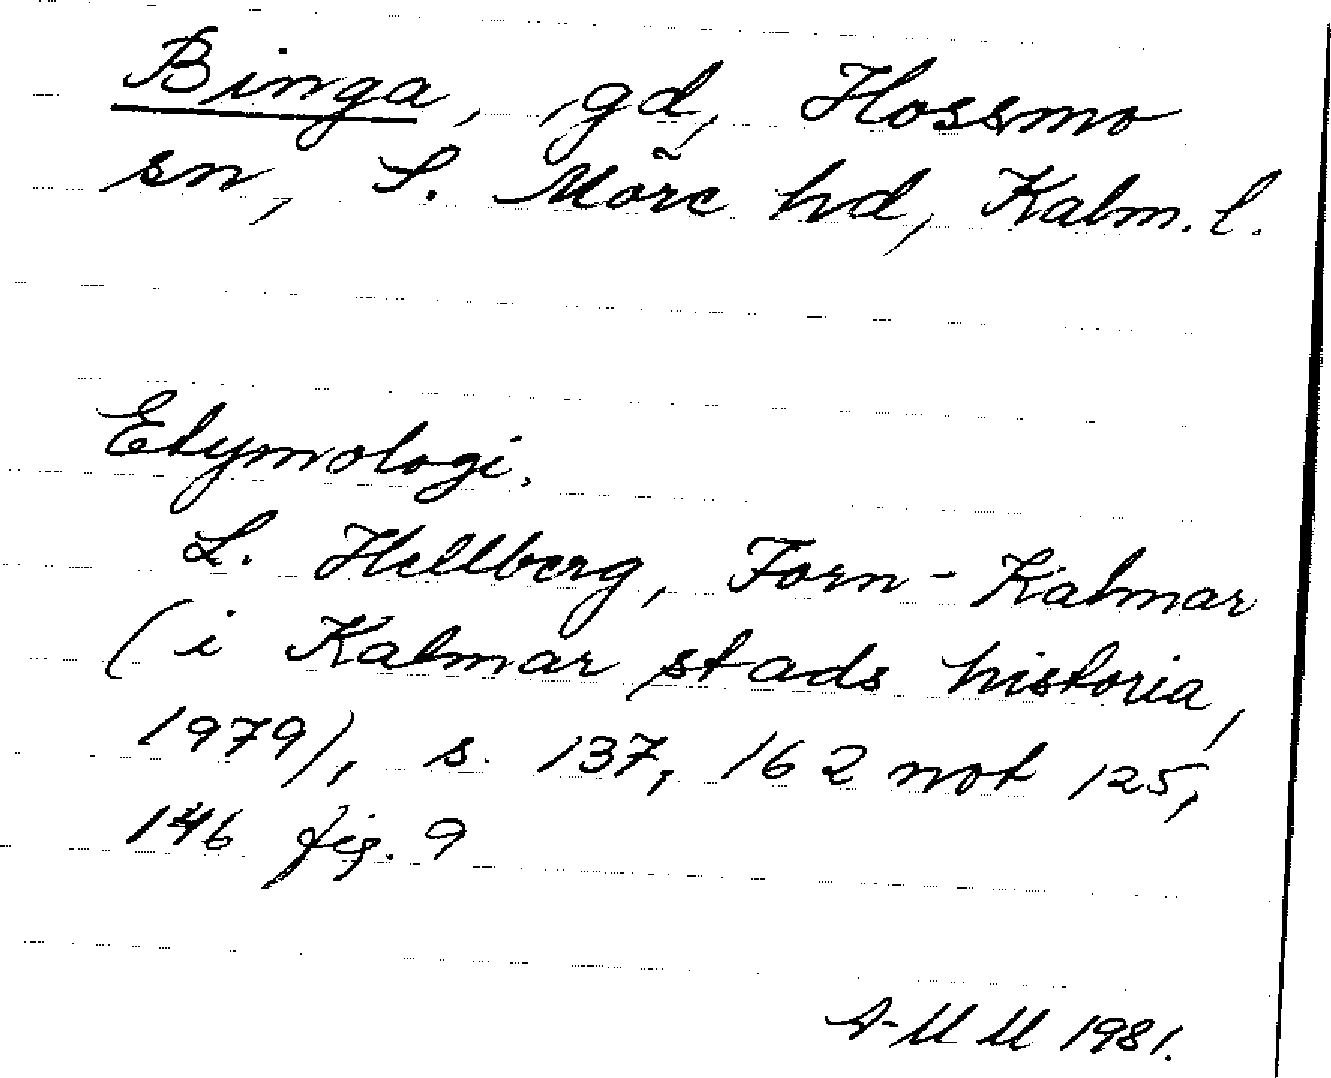 Binga, gd, Hossmo
sn, S. Möre hd, Kalm. l.
Etymologi.
L. Hellberg, Forn-Kalmar
(i Kalmar stads historia,
1979), s. 137, 162 not 125,
146 fig. 9
A-MM 1981.